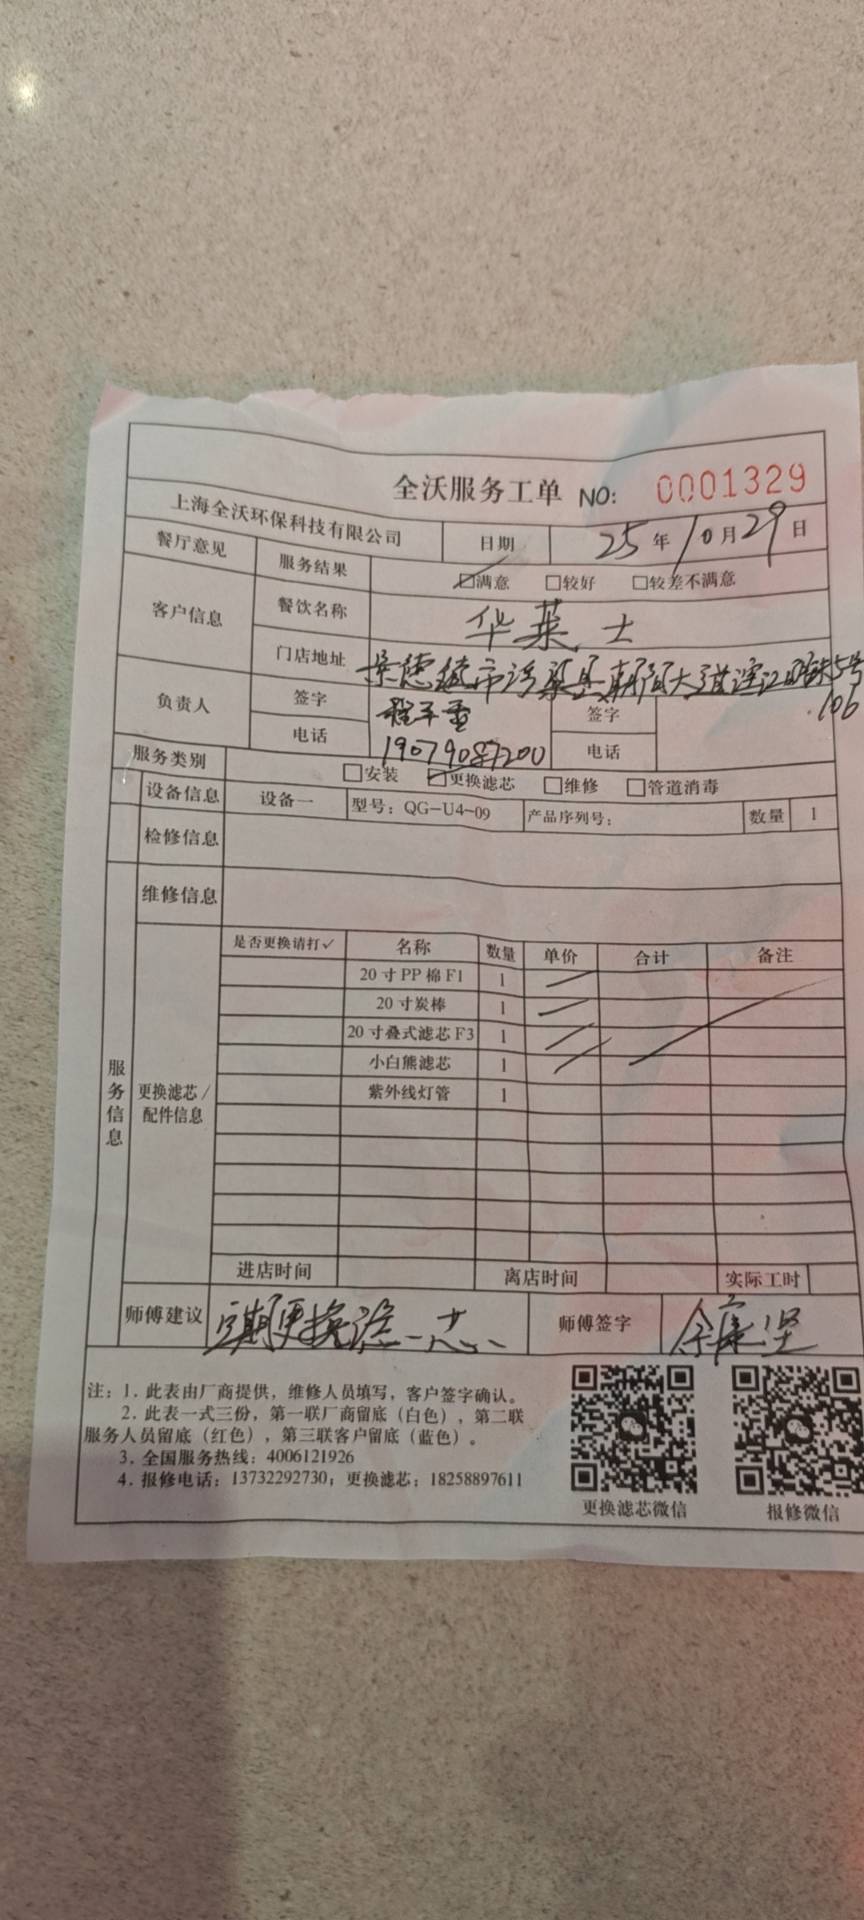 全沃服务工单 NO: 0001329
上海全沃环保科技有限公司 日期 25年10月29日
餐厅意见 服务结果 ☑满意 □较好 □较差不满意
客户信息 餐饮名称 华莱士
门店地址 景德镇市浮梁县朝阳大道 5号
106
负责人 签字 签字
电话 19079087200 电话
服务类别 □安装 ☑更换滤芯 □维修 □管道消毒
设备信息 设备一 型号：QG-U4-09 产品序列号： 数量 1
检修信息
维修信息
服务信息
更换滤芯/配件信息
是否更换请打✓ 名称 数量 单价 合计 备注
20寸PP棉F1 1
20寸炭棒 1
20寸叠式滤芯F3 1
小白熊滤芯 1
紫外线灯管 1
进店时间 离店时间 实际工时
师傅建议 定期更换滤芯 师傅签字
注：1．此表由厂商提供，维修人员填写，客户签字确认。
2．此表一式三份，第一联厂商留底（白色），第二联
服务人员留底（红色），第三联客户留底（蓝色）。
3．全国服务热线：4006121926
4．报修电话：13732292730；更换滤芯：18258897611
更换滤芯微信 报修微信